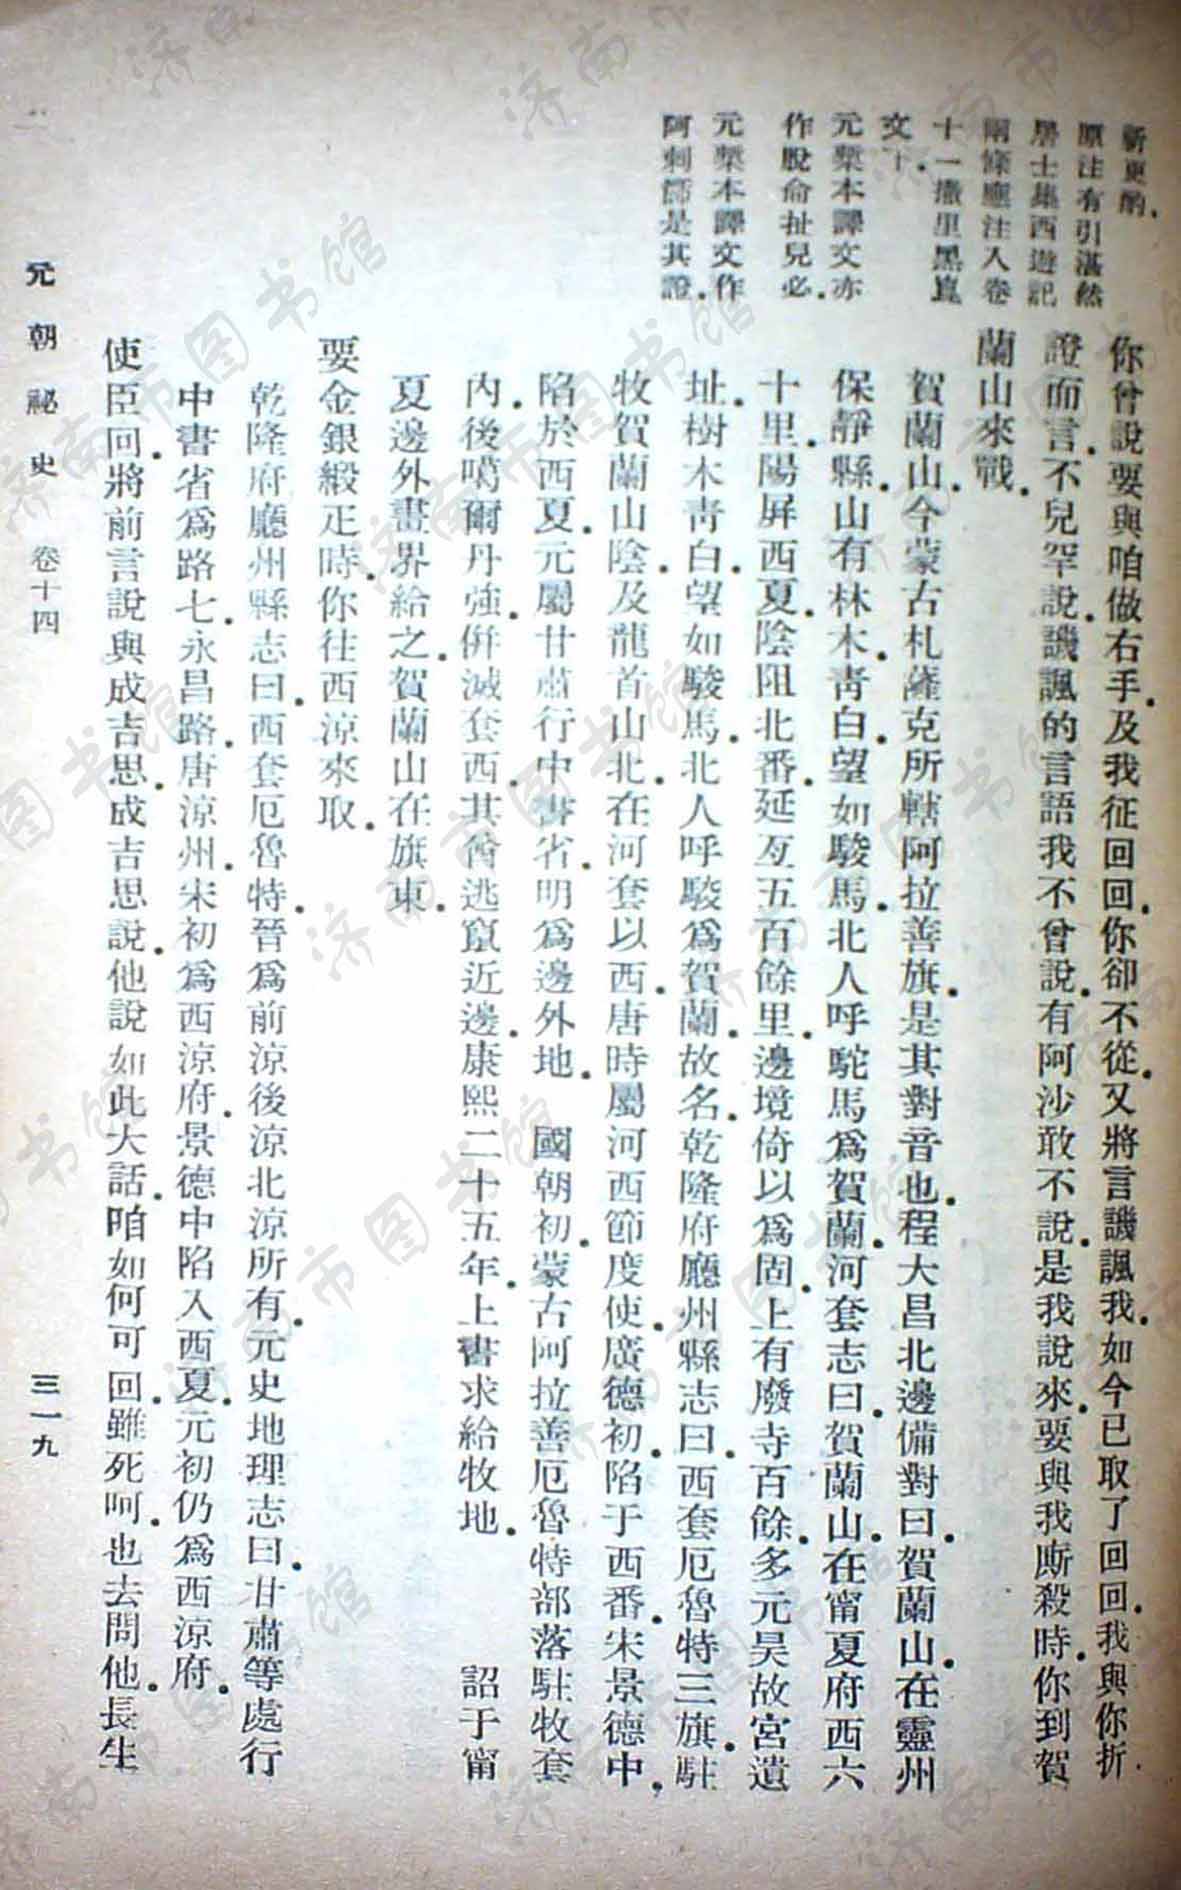 新更酌．
原注有引湛然
居士集西遊記
兩條應注入卷
十一撒里黑崑
文下．
元槧本譯文亦
作脫侖扯兒必．
元槧本譯文作
阿剌篩是其證．
你曾說要與咱做右手．及我征回回．你卻不從．又將言譏諷我．如今已取了回回．我與你折
證前言．不兒罕說．譏諷的言語我不曾說．有阿沙敢不說．是我說來．要與我廝殺時．你到賀
蘭山來戰．
賀蘭山．今蒙古札薩克所轄阿拉善旗．是其對音也．程大昌北邊備對曰．賀蘭山．在靈州
保靜縣．山有林木．青白．望如駿馬．北人呼駝馬爲賀蘭．河套志曰．賀蘭山．在甯夏府西六
十里．陽屏西夏．陰阻北番．延亙五百餘里．邊境倚以爲固．上有廢寺百餘．多元昊故宮遺
址．樹木青白．望如駿馬．北人呼駿爲賀蘭．故名．乾隆府廳州縣志曰．西套厄魯特三旗．駐
牧賀蘭山陰．及龍首山北．在河套以西．唐時屬河西節度使．廣德初．陷于西番．宋景德中．
陷於西夏．元屬甘肅行中書省．明爲邊外地．　國朝初．蒙古阿拉善厄魯特部落駐牧套
內．後噶爾丹強．併滅套西．其酋逃竄近邊．康熙二十五年．上書求給牧地．　　詔于甯
夏邊外畫界給之．賀蘭山在旗東．
要金銀緞疋時．你往西涼來取．
乾隆府廳州縣志曰．西套厄魯特．晉爲前涼後涼北涼所有．元史地理志曰．甘肅等處行
中書省爲路七．永昌路．唐涼州．宋初爲西涼府．景德中陷入西夏．元初仍爲西涼府．
使臣回．將前言說與成吉思．成吉思說．他說如此大話．咱如何可回．雖死呵．也去問他．長生
元朝祕史　卷十四　三一九